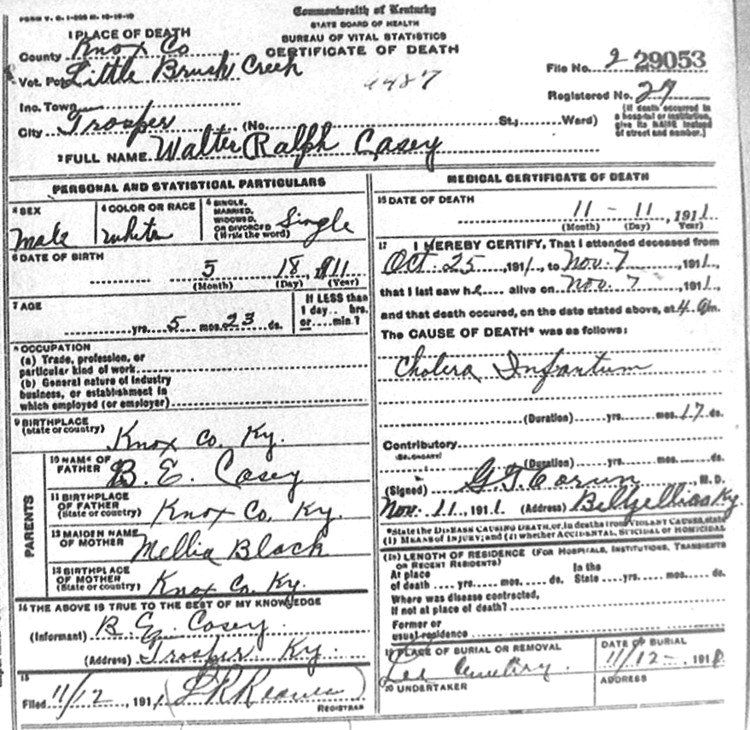 FORM V. S. 1-
Commonwealth of Kentucky
STATE BOARD OF HEALTH
BUREAU OF VITAL STATISTICS
CERTIFICATE OF DEATH
1 PLACE OF DEATH
County Knox Co
Vot. Pct. Little Brush Creek
Inc. Town
City Trosper (No. St.; Ward)
File No. 2 29053
Registered No. 29
(If death occurred in a hospital or institution, give its NAME instead of street and number.)
2 FULL NAME Walter Ralph Casey
PERSONAL AND STATISTICAL PARTICULARS
3 SEX
Male
4 COLOR OR RACE
White
5 SINGLE, MARRIED, WIDOWED, OR DIVORCED (Write the word)
Single
6 DATE OF BIRTH
5 18 1911
(Month) (Day) (Year)
7 AGE
yrs. 5 mos. 23 ds.
If LESS than 1 day.... hrs. or.... min.?
8 OCCUPATION
(a) Trade, profession, or particular kind of work
(b) General nature of industry business, or establishment in which employed (or employer)
9 BIRTHPLACE (State or country)
Knox Co. Ky.
PARENTS
10 NAME OF FATHER
B. E. Casey
11 BIRTHPLACE OF FATHER (State or country)
Knox Co. Ky.
12 MAIDEN NAME OF MOTHER
Mellia Black
13 BIRTHPLACE OF MOTHER (State or country)
Knox Co. Ky.
14 THE ABOVE IS TRUE TO THE BEST OF MY KNOWLEDGE
(Informant) B E. Casey
(Address) Trosper Ky.
15
Filed 11/12 1911
REGISTRAR
MEDICAL CERTIFICATE OF DEATH
16 DATE OF DEATH
11 - 11, 1911
(Month) (Day) Year)
17 I HEREBY CERTIFY, That I attended deceased from
Oct 25, 1911, to Nov. 7, 1911,
that I last saw h alive on Nov. 7, 1911,
and that death occured, on the date stated above, at 4 m.
The CAUSE OF DEATH* was as follows:
Cholera Infantum
(Duration) yrs. mos. 17 ds.
Contributory
(SECONDARY)
(Duration) yrs. mos. ds.
(Signed) M. D.
Nov. 11, 1911 (Address)
*State the DISEASE CAUSING DEATH, or, in deaths from VIOLENT CAUSES, state
(1) MEANS of INJURY; and (2) whether ACCIDENTAL, SUICIDAL or HOMICIDAL
18 LENGTH OF RESIDENCE (FOR HOSPITALS, INSTITUTIONS, TRANSIENTS OR RECENT RESIDENTS)
At place of death yrs. mos. ds. In the State yrs. mos. ds.
Where was disease contracted,
If not at place of death?
Former or
usual residence
19 PLACE OF BURIAL OR REMOVAL
Lee Cemetery.
DATE OF BURIAL
11/12 191
20 UNDERTAKER
ADDRESS